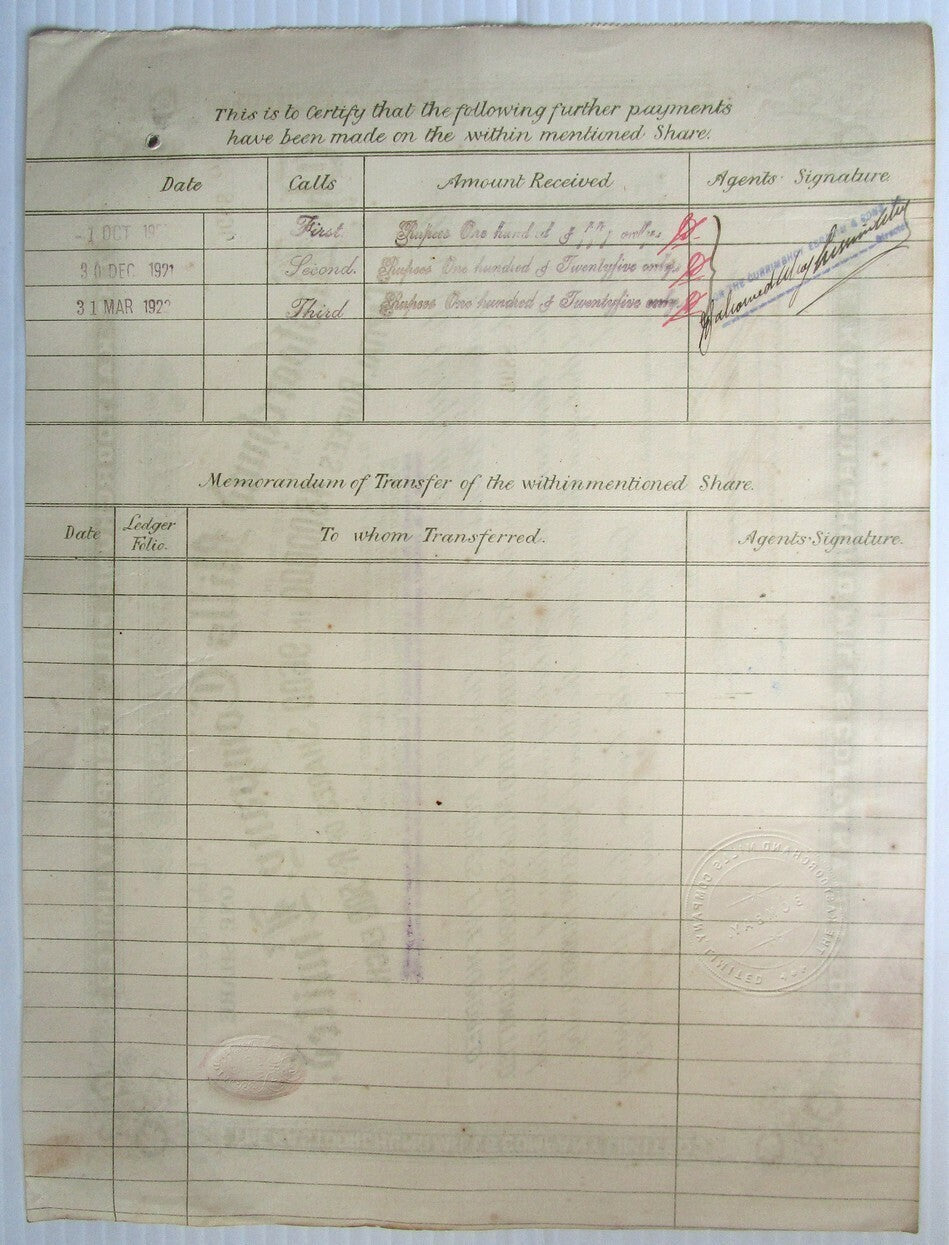 This is to Certify that the following further payments
have been made on the within mentioned Share.
Date Calls Amount Received Agents' Signature.
-1 OCT 19 First. Rupees One hund & only
30 DEC 1921 Second. Rupees One hundred & Twentyfive only
31 MAR 192 Third Rupees One hundred & Twentyfive only
FOR THE CURRIMBHOY & SONS
Director
Memorandum of Transfer of the withinmentioned Share.
Date Ledger Folio. To whom Transferred. Agents' Signature.
COMPANY LIMITED
BOMBAY